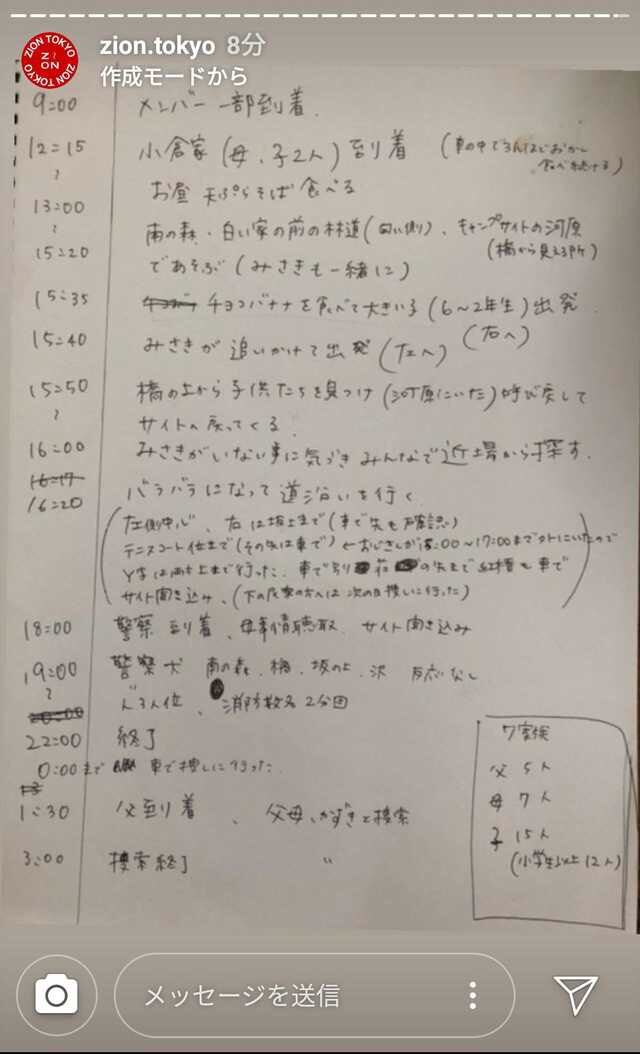 zion.tokyo 8分
作成モードから
ZION TOKYO ZION TOKYO
9:00 メンバー一部到着.
12:15 小倉家(母、子2人)到着 (車の中で おかし
食べ続ける)
お昼 天ぷらそば 食べる
13:00
南の森・白い家の前の林道(向い側)、キャンプサイトの河原
(橋から見える所)
15:20 であそぶ(みさきも一緒に)
15:35 チョコバナナを食べて大きい子(6〜2年生)出発.
(右へ)
15:40 みさきが追いかけて出発(左へ)
15:50 橋の上から子供たちを見つけ(河原にいた)呼び戻して
サイトへ戻ってくる
16:00 みさきがいない事に気づきみんなで近場から探す.
16:20 バラバラになって道沿いを行く
(左側中心、右は坂上まで(車で先も確認)
テニスコート位まで(その先は車で)←おじさんが :00〜17:00まで外にいたので
Y字は両方上まで行った. 車で の先まで 車で
サイト聞き込み、(下の民家の方へは次の日捜しに行った)
18:00 警察到着、母事情聴取、サイト聞き込み
19:00 警察犬 南の森、橋、坂の上、沢 反応なし
3人位、消防数名2分団
22:00 終了
0:00まで 車で捜しに行った.
1:30 父到着、父母、かずきと検索
3:00 捜索終了 〃
7家族
父 5人
母 7人
子 15人
(小学生以上12人)
メッセージを送信